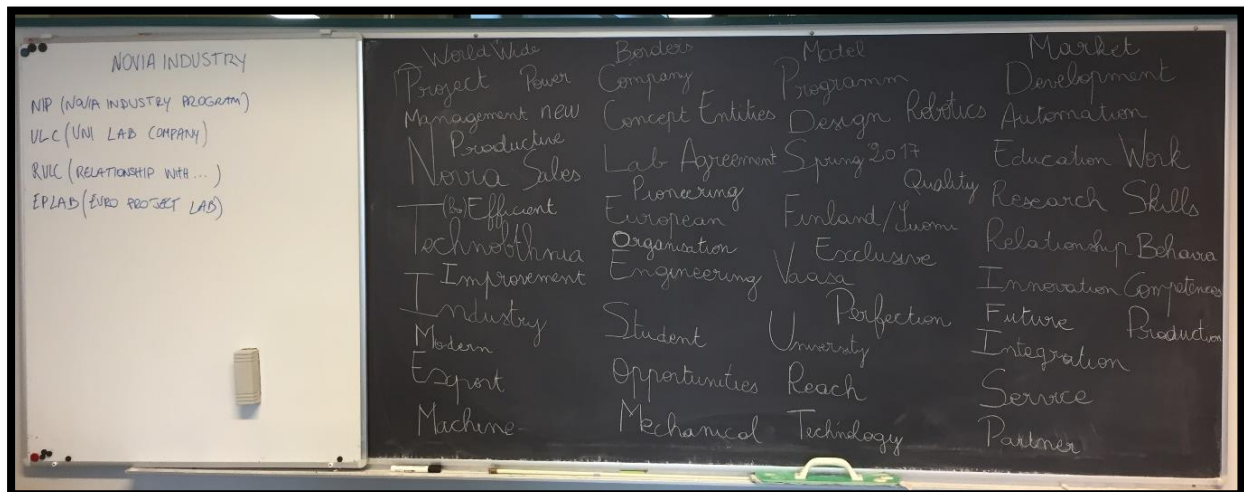 NOVIA INDUSTRY
NIP (NOVIA INDUSTRY PROGRAM)
ULC (UNI LAB COMPANY)
RULC (RELATIONSHIP WITH ...)
EPLAB (EURO PROJECT LAB)
World Wide
Project Power
Management new
Productive
Novia Sales
(Bo) Efficient
Technobothnia
Improvement
Industry
Modern
Export
Machine
Borders
Company
Concept Entities
Lab Agreement
Pioneering
European
Organisation
Engineering
Student
Opportunities
Mechanical
Model
Programm
Design Robotics
Spring 2017
Quality
Finland/Suomi
Exclusive
Vaasa
Perfection
University
Reach
Technology
Market
Development
Automation
Education Work
Research Skills
Relationship Behavia
Innovation Competences
Future Production
Integration
Service
Partner